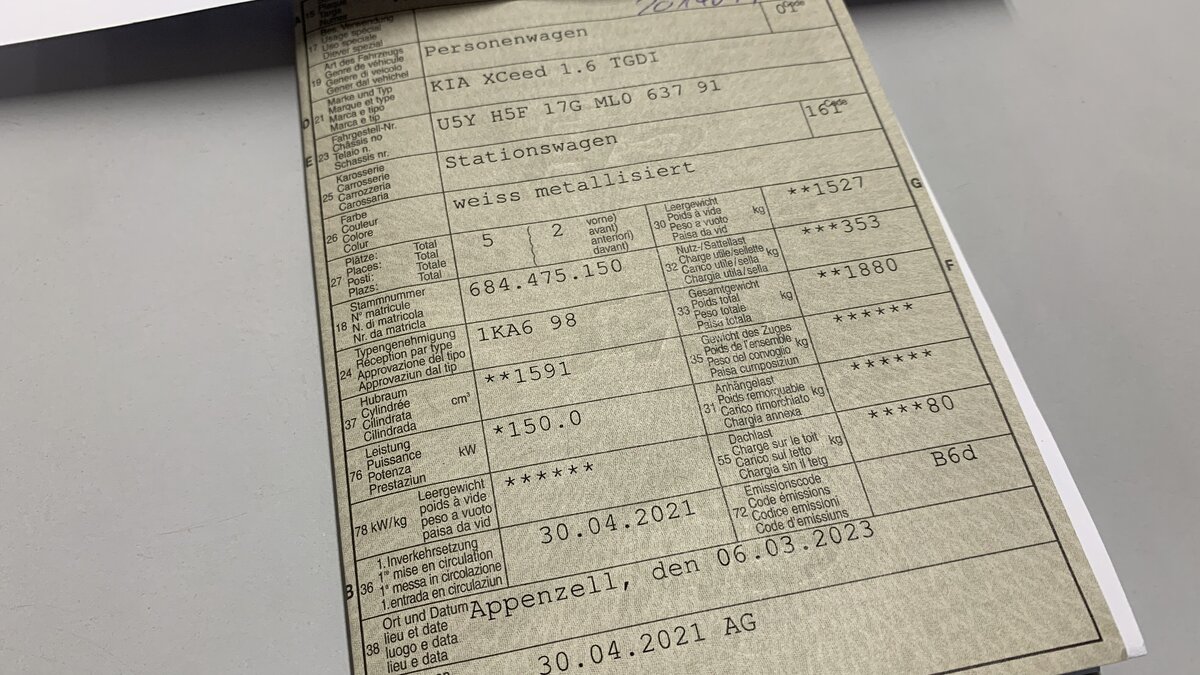 A 15 Plaque
Targa
Numer
Bes. Verwendung
Usage spécial
17 Uso speciale
Diever spezial
Code
01
Art des Fahrzeugs
Genre de véhicule
19 Genere di veicolo
Gener dal vehichel
Personenwagen
Marke und Typ
D 21 Marque et type
Marca e tipo
Marca e tip
KIA XCeed 1.6 TGDI
Fahrgestell-Nr.
Châssis no
E 23 Telaio n.
Schassis nr.
U5Y H5F 17G ML0 637 91
Karosserie
25 Carrosserie
Carrozzeria
Carossaria
Stationswagen
Code
161
Farbe
26 Couleur
Colore
Colur
weiss metallisiert
Plätze: Total
27 Places: Total
Posti: Totale
Plazs: Total
5 2 vorne)
avant)
anteriori)
davant)
Leergewicht
30 Poids à vide kg
Peso a vuoto
Paisa da vid
**1527 G
Stammnummer
18 N° matricule
N. di matricola
Nr. da matricla
684.475.150
Nutz-/Sattellast
32 Charge utile/sellette kg
Carico utile/sella
Chargia utila/sella
***353
Typengenehmigung
24 Réception par type
Approvazione del tipo
Approvaziun dal tip
1KA6 98
Gesamtgewicht
33 Poids total kg
Peso totale
Paisa totala
**1880 F
Hubraum
37 Cylindrée cm³
Cilindrata
Cilindrada
**1591
Gewicht des Zuges
35 Poids de l'ensemble kg
Peso del convoglio
Paisa cumposiziun
******
Leistung
76 Puissance kW
Potenza
Prestaziun
*150.0
Anhängelast
31 Poids remorquable kg
Carico rimorchiato
Chargia annexa
******
78 kW/kg Leergewicht
poids à vide
peso a vuoto
paisa da vid
******
Dachlast
55 Charge sur le toit kg
Carico sul tetto
Chargia sin il tetg
****80
B 36 1. Inverkehrsetzung
1re mise en circulation
1a messa in circolazione
1. entrada en circulaziun
30.04.2021
Emissionscode
72 Code émissions
Codice emissioni
Code d'emissiuns
B6d
Ort und Datum
38 lieu et date
luogo e data
lieu e data
Appenzell, den 06.03.2023
30.04.2021 AG